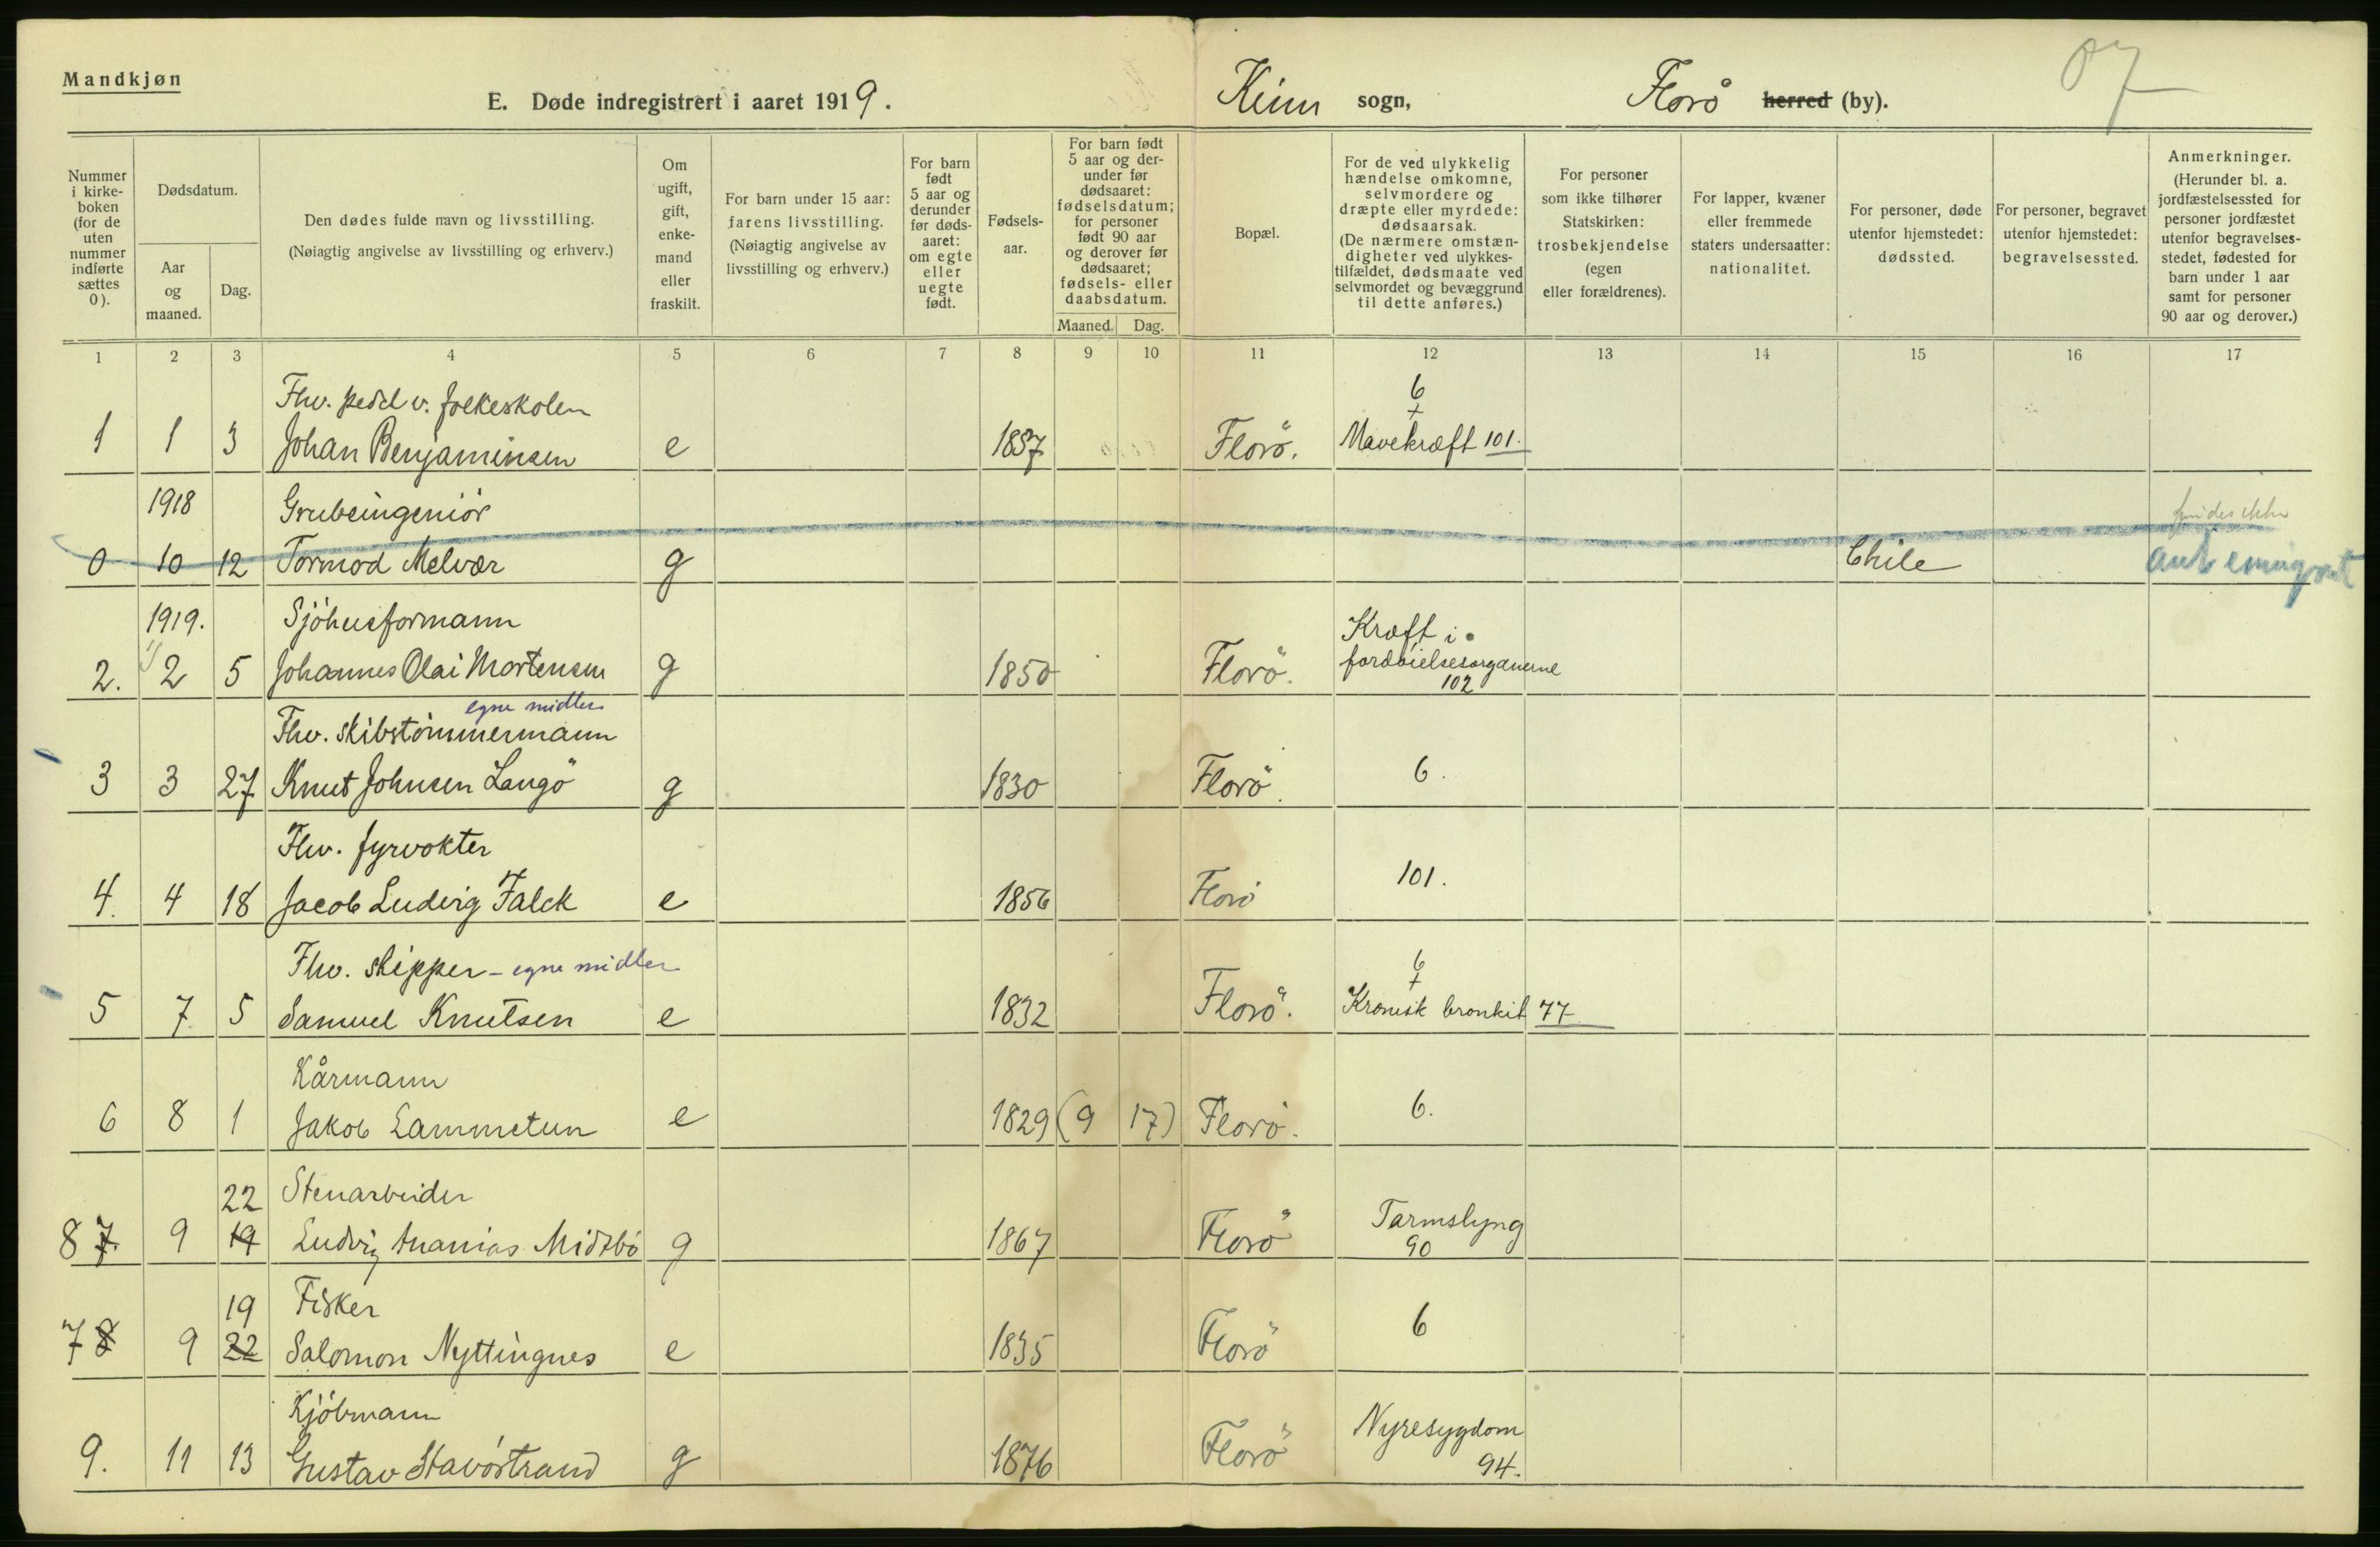 Mandkjøn
E. Døde indregistrert i aaret 1919.
Kinn sogn, Florö herred (by).
07
Nummer i kirke-boken (for de uten nummer indførte sættes 0).
Dødsdatum.
Aar og maaned.
Dag.
Den dødes fulde navn og livsstilling.
(Nøiagtig angivelse av livsstilling og erhverv.)
Om ugift, gift, enke-mand eller fraskilt.
For barn under 15 aar: farens livsstilling.
(Nøiagtig angivelse av livsstilling og erhverv.)
For barn født 5 aar og derunder før døds-aaret: om egte eller uegte født.
Fødsels-aar.
For barn født 5 aar og der-under før dødsaaret: fødselsdatum; for personer født 90 aar og derover før dødsaaret; fødsels- eller daabsdatum.
Maaned. Dag.
Bopæl.
For de ved ulykkelig hændelse omkomne, selvmordere og dræpte eller myrdede: dødsaarsak.
(De nærmere omstæn-digheter ved ulykkes-tilfældet, dødsmaate ved selvmordet og bevæggrund til dette anføres.)
For personer som ikke tilhører Statskirken: trosbekjendelse (egen eller forældrenes).
For lapper, kvæner eller fremmede staters undersaatter: nationalitet.
For personer, døde utenfor hjemstedet: dødssted.
For personer, begravet utenfor hjemstedet: begravelsessted.
Anmerkninger.
(Herunder bl. a. jordfæstelsessted for personer jordfæstet utenfor begravelses-stedet, fødested for barn under 1 aar samt for personer 90 aar og derover.)
1 2 3 4 5 6 7 8 9 10 11 12 13 14 15 16 17
Fhv. pedel v. folkeskolen 6
+
1 1 3 Johan Benjaminsen e 1857 Florö. Mavekræft 101.
1918 Grubeingeniör findes ikke
0 10 12 Tormod Melvær g Chile antemigrant
1919. Sjöhusformann Kræft i
2. 2 5 Johannes Olai Mortensen g 1850 Florö. fordöielsesorganerne
102
egne midler
Fhv. skibstömmermann
3 3 27 Knut Johnsen Langö g 1830 Florö. 6.
Fhv. fyrvokter
4. 4 18 Jacob Ludvig Falck e 1856 Florö 101.
Fhv. skipper - egne midler 6
+
5 7. 5 Samuel Knutsen e 1832 Florö. Kronisk bronkit 77
Kårmann
6 8 1 Jakob Lammetun e 1829 (9 17) Florö. 6.
22 Stenarbeider
8 7. 9 19 Ludvig Ananias Midtbö g 1867 Florö Tarmslyng
90
19 Fisker
7 8 9 22 Salomon Nyttingnes e 1835 Florö 6
Kjöbmann
9. 11 13 Gustav Stavöstrand g 1876 Florö Nyresygdom
94.